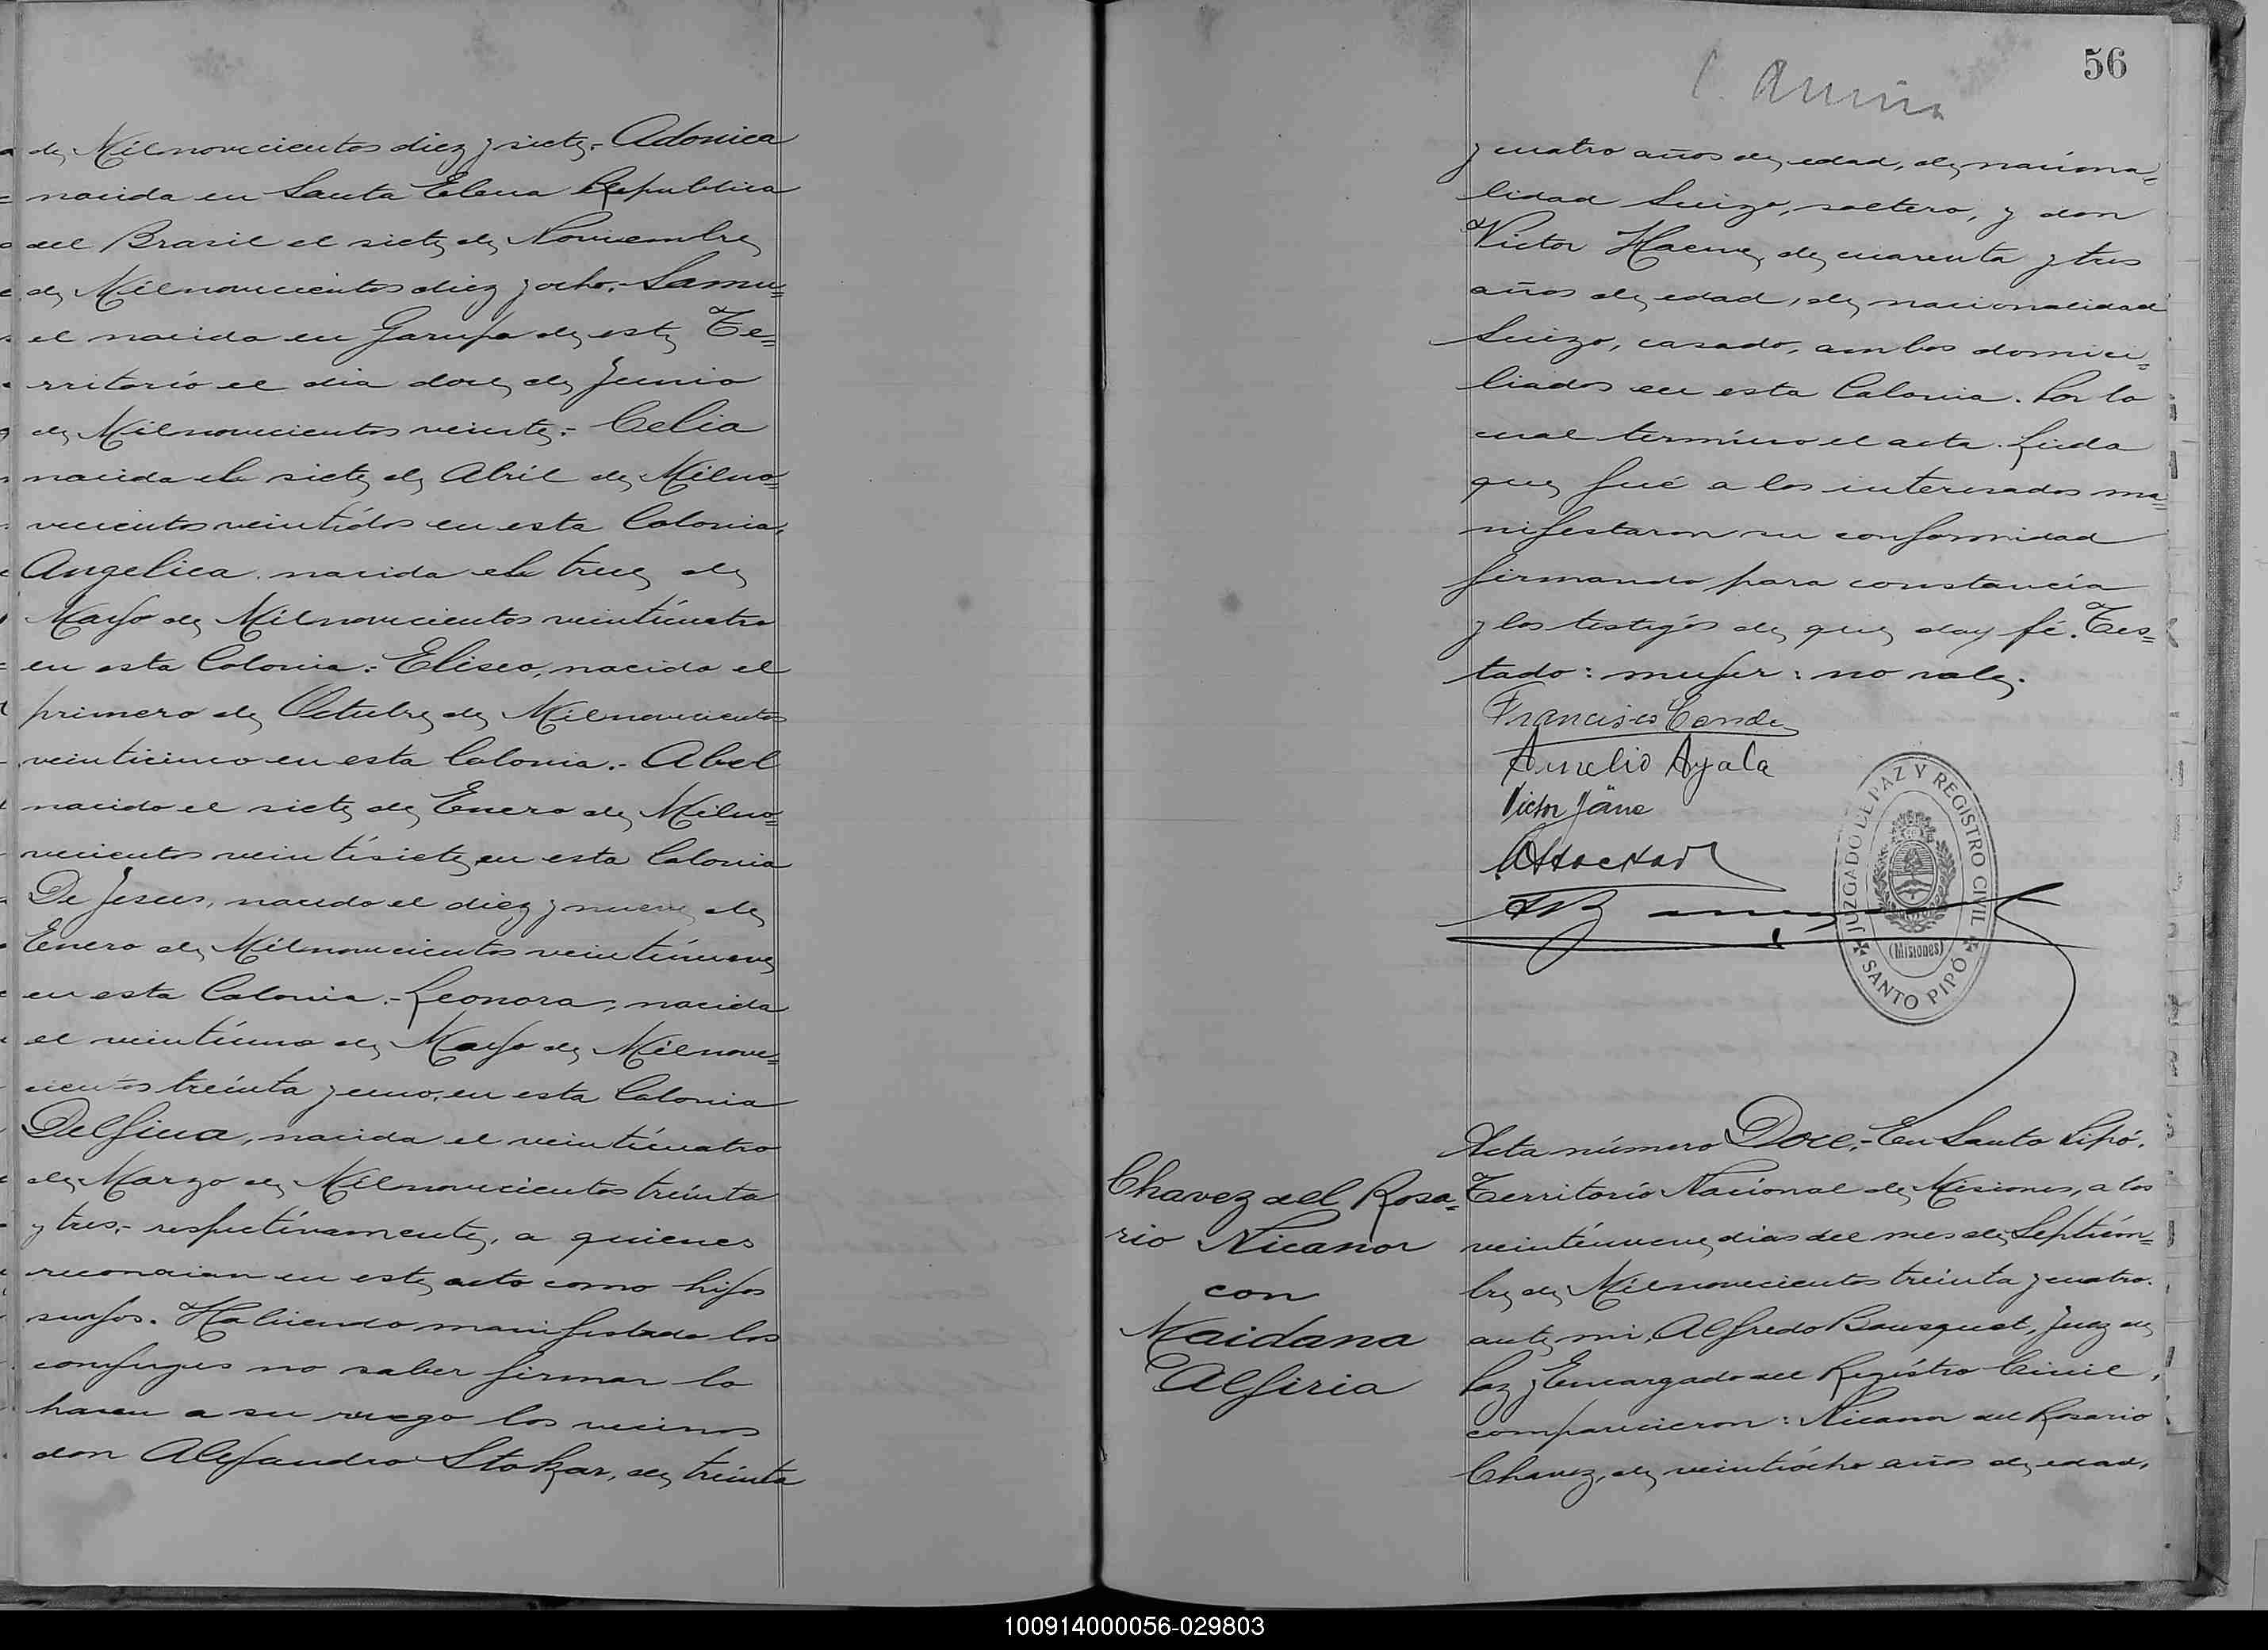 de Milnovecientos diez y siete.- Adonica
nacida en Santa Elena Republica
del Brasil el siete de Noviembre
de Milnovecientos diez y ocho.- Samu=
el nacida en Garupa de este Te=
rritorio el dia doce de Junio
de Milnovecientos veinte.- Celia
nacida el siete de Abril de Milno=
vecientos veintidos en esta Colonia,
Angelica nacida el trece de
Mayo de Milnovecientos veinticuatro
en esta Colonia.- Eliseo, nacido el
primero de Octubre de Milnovecientos
veinticinco en esta Colonia.- Abel
nacido el siete de Enero de Milno=
vecientos veintisiete en esta Colonia
De Jesus, nacido el diez y nueve de
Enero de Milnovecientos veintinueve
en esta Colonia.- Leonora, nacida
el veintiuno de Mayo de Milnove=
cientos treinta y uno, en esta Colonia
Delfina, nacida el veinticuatro
de Marzo de Milnovecientos treinta
y tres.- respectivamente, a quienes
reconocian en este acto como hijos
suyos. Habiendo manifestado los
conyuges no saber firmar lo
hacen a su ruego los vecinos
don Alejandro Stokar, de treinta
56
y cuatro años de edad, de naciona=
lidad Suizo, soltero, y don
Victor Haene, de cuarenta y tres
años de edad, de nacionalidad
Suizo, casado, ambos domici=
liados en esta Colonia. Con lo
cual terminó el acta. Leida
que fué a los interesados ma=
nifestaron su conformidad
firmando para constancia
y los testigos de que doy fé. Tes=
tado: mujer: no vale.
Francisco Conde
Aurelio Ayala
Victor Jäne
AStockar
JUZGADO DE PAZ Y REGISTRO CIVIL
(Misiones)
SANTO PIPÓ
Chavez del Rosa=
rio Nicanor
con
Maidana
Alfiria
Acta número Doce.- En Santo Pipó,
Territorio Nacional de Misiones, a los
veintinueve dias del mes de Septiem=
bre de Milnovecientos treinta y cuatro.
ante mi, Alfredo Bousquet, Juez de
Paz y Encargado del Registro Civil,
comparecieron: Nicanor del Rosario
Chavez, de veintiocho años de edad,
100914000056-029803